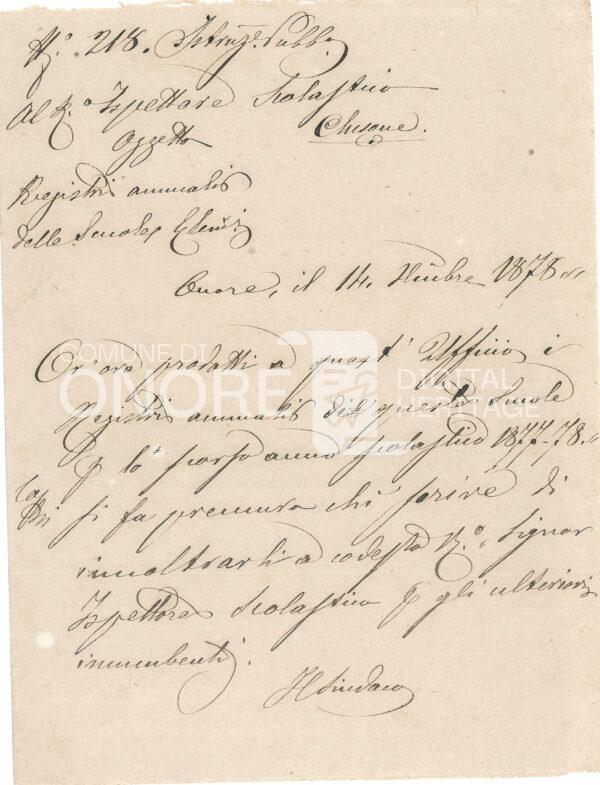 N.° 218. Istruz.e Pubb.a
Al R.° Ispettore Scolastico
Clusone.
Oggetto
Registri annuali
delle Scuole Elem.i
Onore, il 14. 9mbre 1878
Or ora prodotti a quest' Ufficio i
Registri annuali di queste Scuole
p lo scorso anno scolastico 1877-78
si fa premura chi scrive di
innoltrarli a codesto R.° Signor
Ispettore Scolastico p gli ulteriori
incumbenti.
Il Sindaco
COMUNE DI
ONORE
DIGITAL
HERITAGE